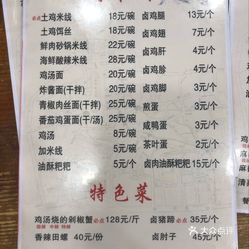 必点 土鸡米线 18元/碗 卤鸡腿 13元/个
土鸡饵丝 18元/碗 卤鸡翅 7元/个
鲜肉砂锅米线 20元/碗 卤鸡肝 4元/个
海鲜酸辣米线 20元/碗 卤鸡胗 4元/个
鸡汤面 20元/碗 卤鸡脚 3元/个
炸酱面(干拌) 20元/碗 煎蛋 3元/个
青椒肉丝面(干拌) 20元/碗 咸鸭蛋 3元/个
番茄鸡蛋面(干/汤) 25元/碗 茶叶蛋 2元/个
鸡汤 8元/碗 卤肉油酥粑粑 15元/个
加米线 5元/碗
油酥粑粑 5元/个
特色菜
鸡汤烧的剁椒蟹 必点 128元/斤 卤猪蹄 必点 35元/个
香辣田螺 40元/份 卤肘子 45元/个
大众点评